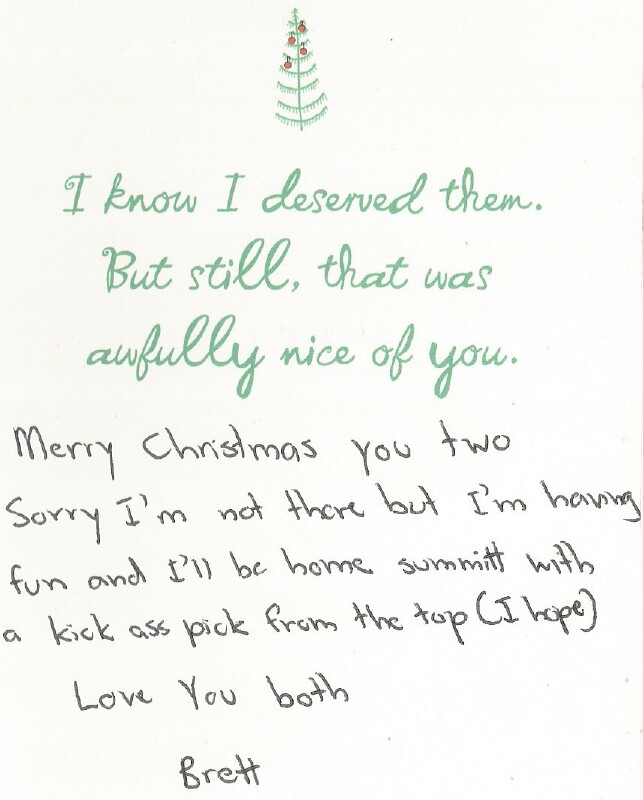 I know I deserved them.
But still, that was
awfully nice of you.
Merry Christmas you two
Sorry I'm not there but I'm having
fun and I'll be home summitt with
a kick ass pick from the top (I hope)
Love You both
Brett